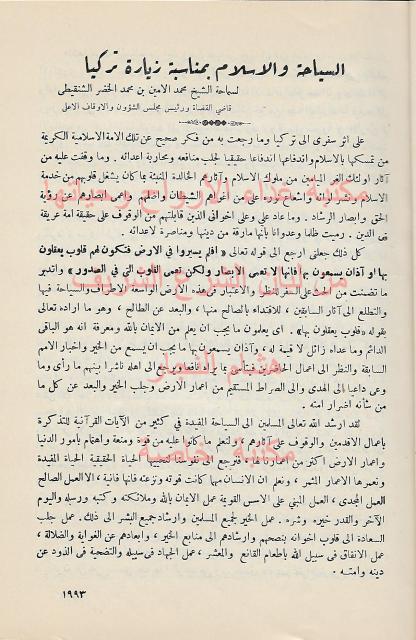 السياحة والاسلام بمناسبة زيارة تركيا
لسماحة الشيخ محمد الامين بن محمد الخضر الشنقيطي
قاضي القضاة ورئيس مجلس الشؤون والاوقاف الاعلى
على اثر سفرى الى تركيا وما رجعت به من فكر صحيح عن تلك الامة الاسلامية الكريمة
من تمسكها بالاسلام واندفاعها اندفاعا حقيقيا لجلب منافعه ومحاربة اعدائه . وما وقفت عليه من
آثار اولئك الغر الميامين من ملوك الاسلام وآثارهم الخالدة المنبئة عما كان يشغل قلوبهم من خدمة
الاسلام ونشر لوائه
الحق وابصار الرشاد . وما عاد علي وعلى اخوانى الذين قابلتهم من الوقوف على حقيقة امة عريقة
فى الدين . رميت ظلما وعدوانا بأنها مارقة من دينها ومناصرة لاعدائه .
كل ذلك جعلنى ارجع الى قوله تعالى « افلم يسيروا فى الارض فتكون لهم قلوب يعقلون
بها او آذان يسمعون بها فانها لا تعمى الابصار ولكن تعمى القلوب التي في الصدور » واتدبر
ما تضمنت من الحث على السفر للنظر والاعتبار فى هذه الارض الواسعة الاطراف والسياحة فيها
والتطلع الى آثار السابقين ، للاقتداء بالصالح منها ، والبعد عن الطالح ، وهو ما اراده تعالى
بقوله « قلوب يعقلون بها » . اى يعلمون ما يجب ان يعلم من الايمان بالله ومعرفة انه هو الباقى
الدائم وما عداه زائل لا قيمة له ، وآذان يسمعون بها ما يجب ان يسمع من الخير واخبار الامم
السابقة والنظر الى اعمال الحاضرين فيتأسى بما يراه نافعا ويرجع الى اهله ناشرا بينهم ما رأى وما
وعى داعيا الى الهدى والى الصراط المستقيم من اعمار الارض وجلب الخير والبعد عن كل ما
من شأنه اضرار امته .
لقد ارشد الله تعالى المسلمين الى السياحة المفيدة فى كثير من الآيات القرآنية للتذكرة
باعمال الاقدمين والوقوف على آثارهم ، ولنعلم ما كانوا عليه من قوة ومنعة واهتمام بامور الدنيا
واعمار الارض اكثر من اعمارنا لها ، فنرجع الى نفوسنا فنحييها الحياة الحقيقية الحياة المفيدة
ونعمرها الاعمار المثمر ، ونعلم ان الانسان مهما كانت قوته ونزعته فانها فانية ، الا العمل الصالح
العمل المجدى ، العمل المبنى على الاسس القويمة عمل الايمان بالله وملائكته وكتبه ورسله واليوم
الآخر والقدر خيره وشره . عمل الخير لجميع المسلمين وارشاد جميع البشر الى ذلك . عمل جلب
السعادة الى قلوب اخوانه بنصحهم وارشادهم الى منابع الخير ، وابعادهم عن الغواية والضلالة ،
عمل الانفاق فى سبيل الله باطعام القانع والمعتر ، عمل الجهاد فى سبيله والتضحية في الذود عن
دينه وامته .
١٩٩٣
مكتبة غذاء الأرواح وحياتها
من لبان الشرع الشريف
هشام النصار
مكتبة خاصة